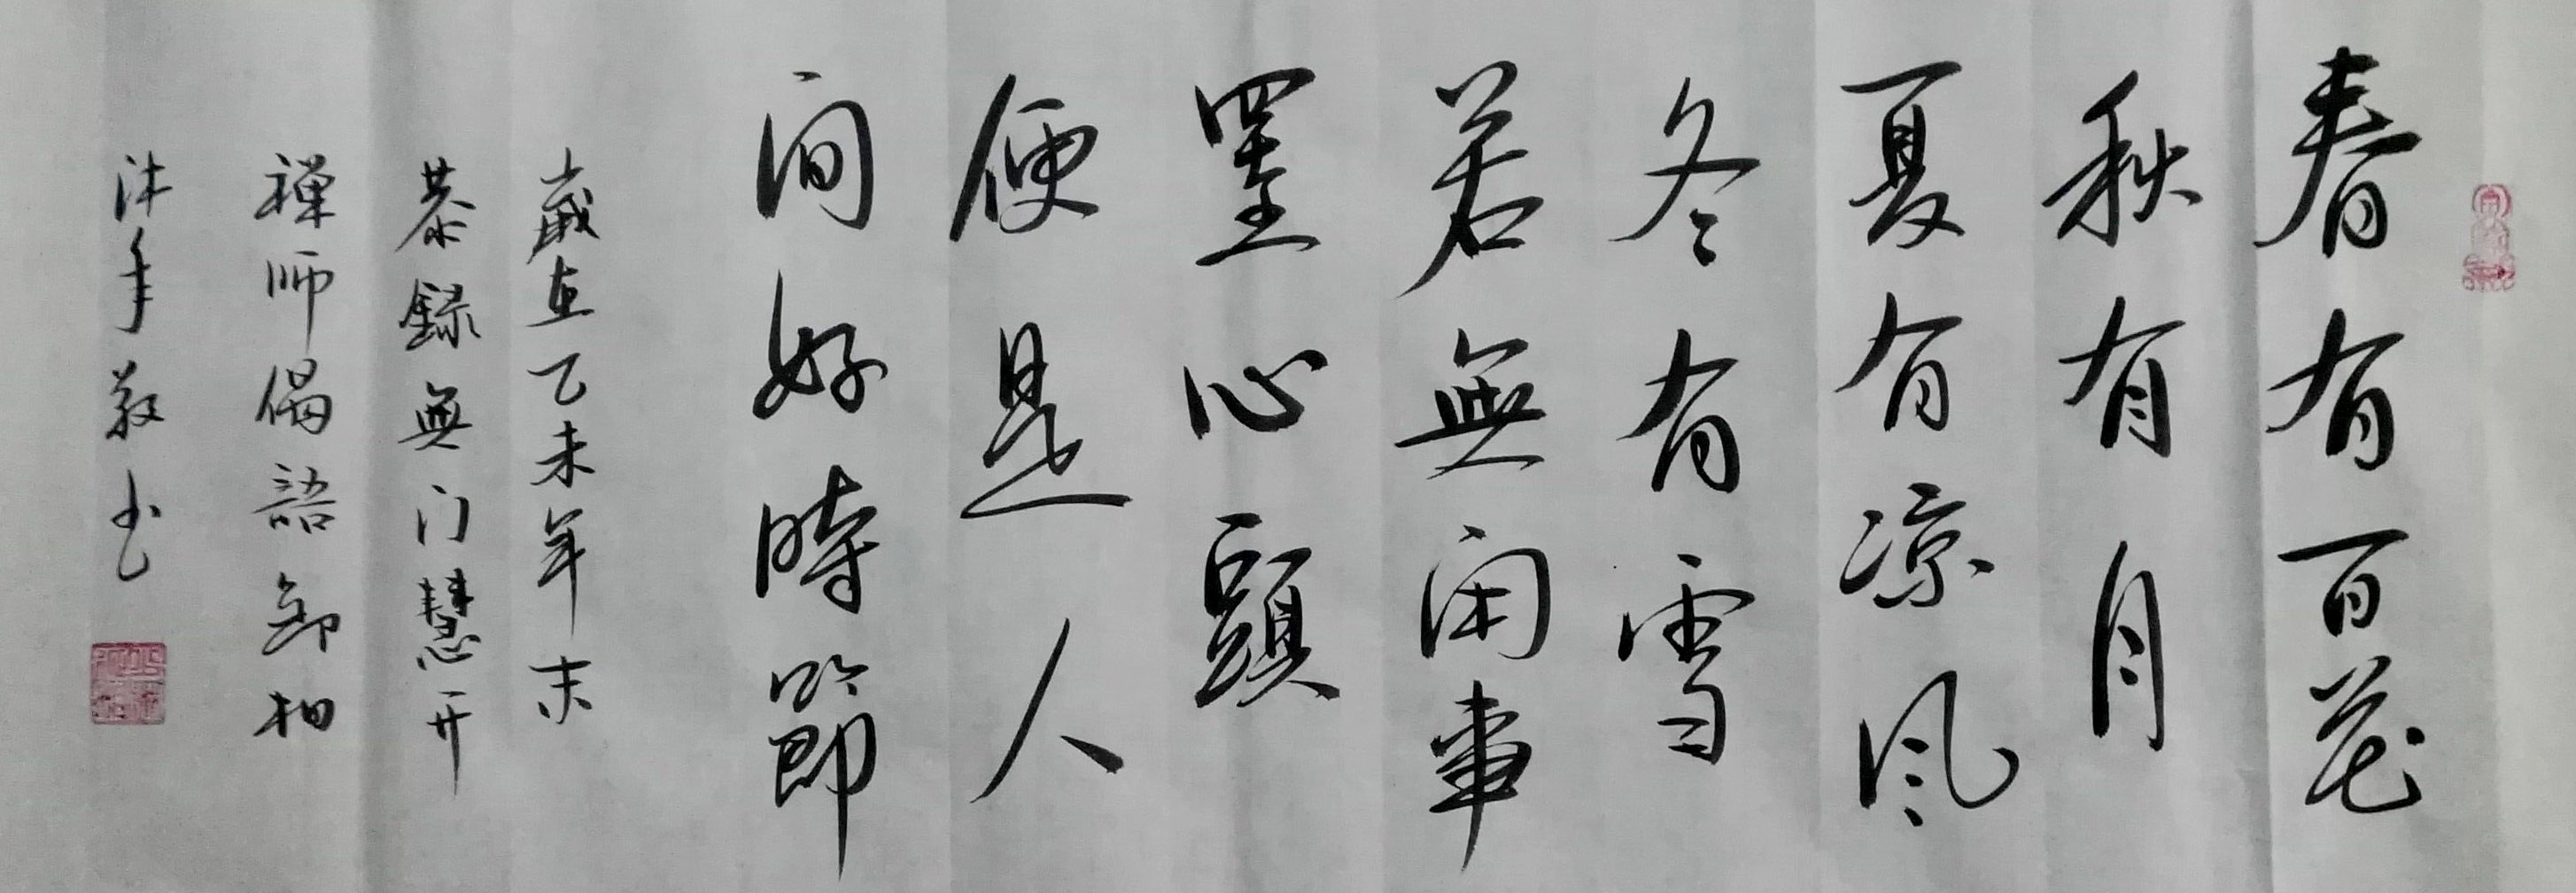 春有百花
秋有月
夏有凉风
冬有雪
若無闲事
罣心頭
便是人
间好時節
歲在乙未年末
恭録無门慧开
禪师偈語
沐手敬书